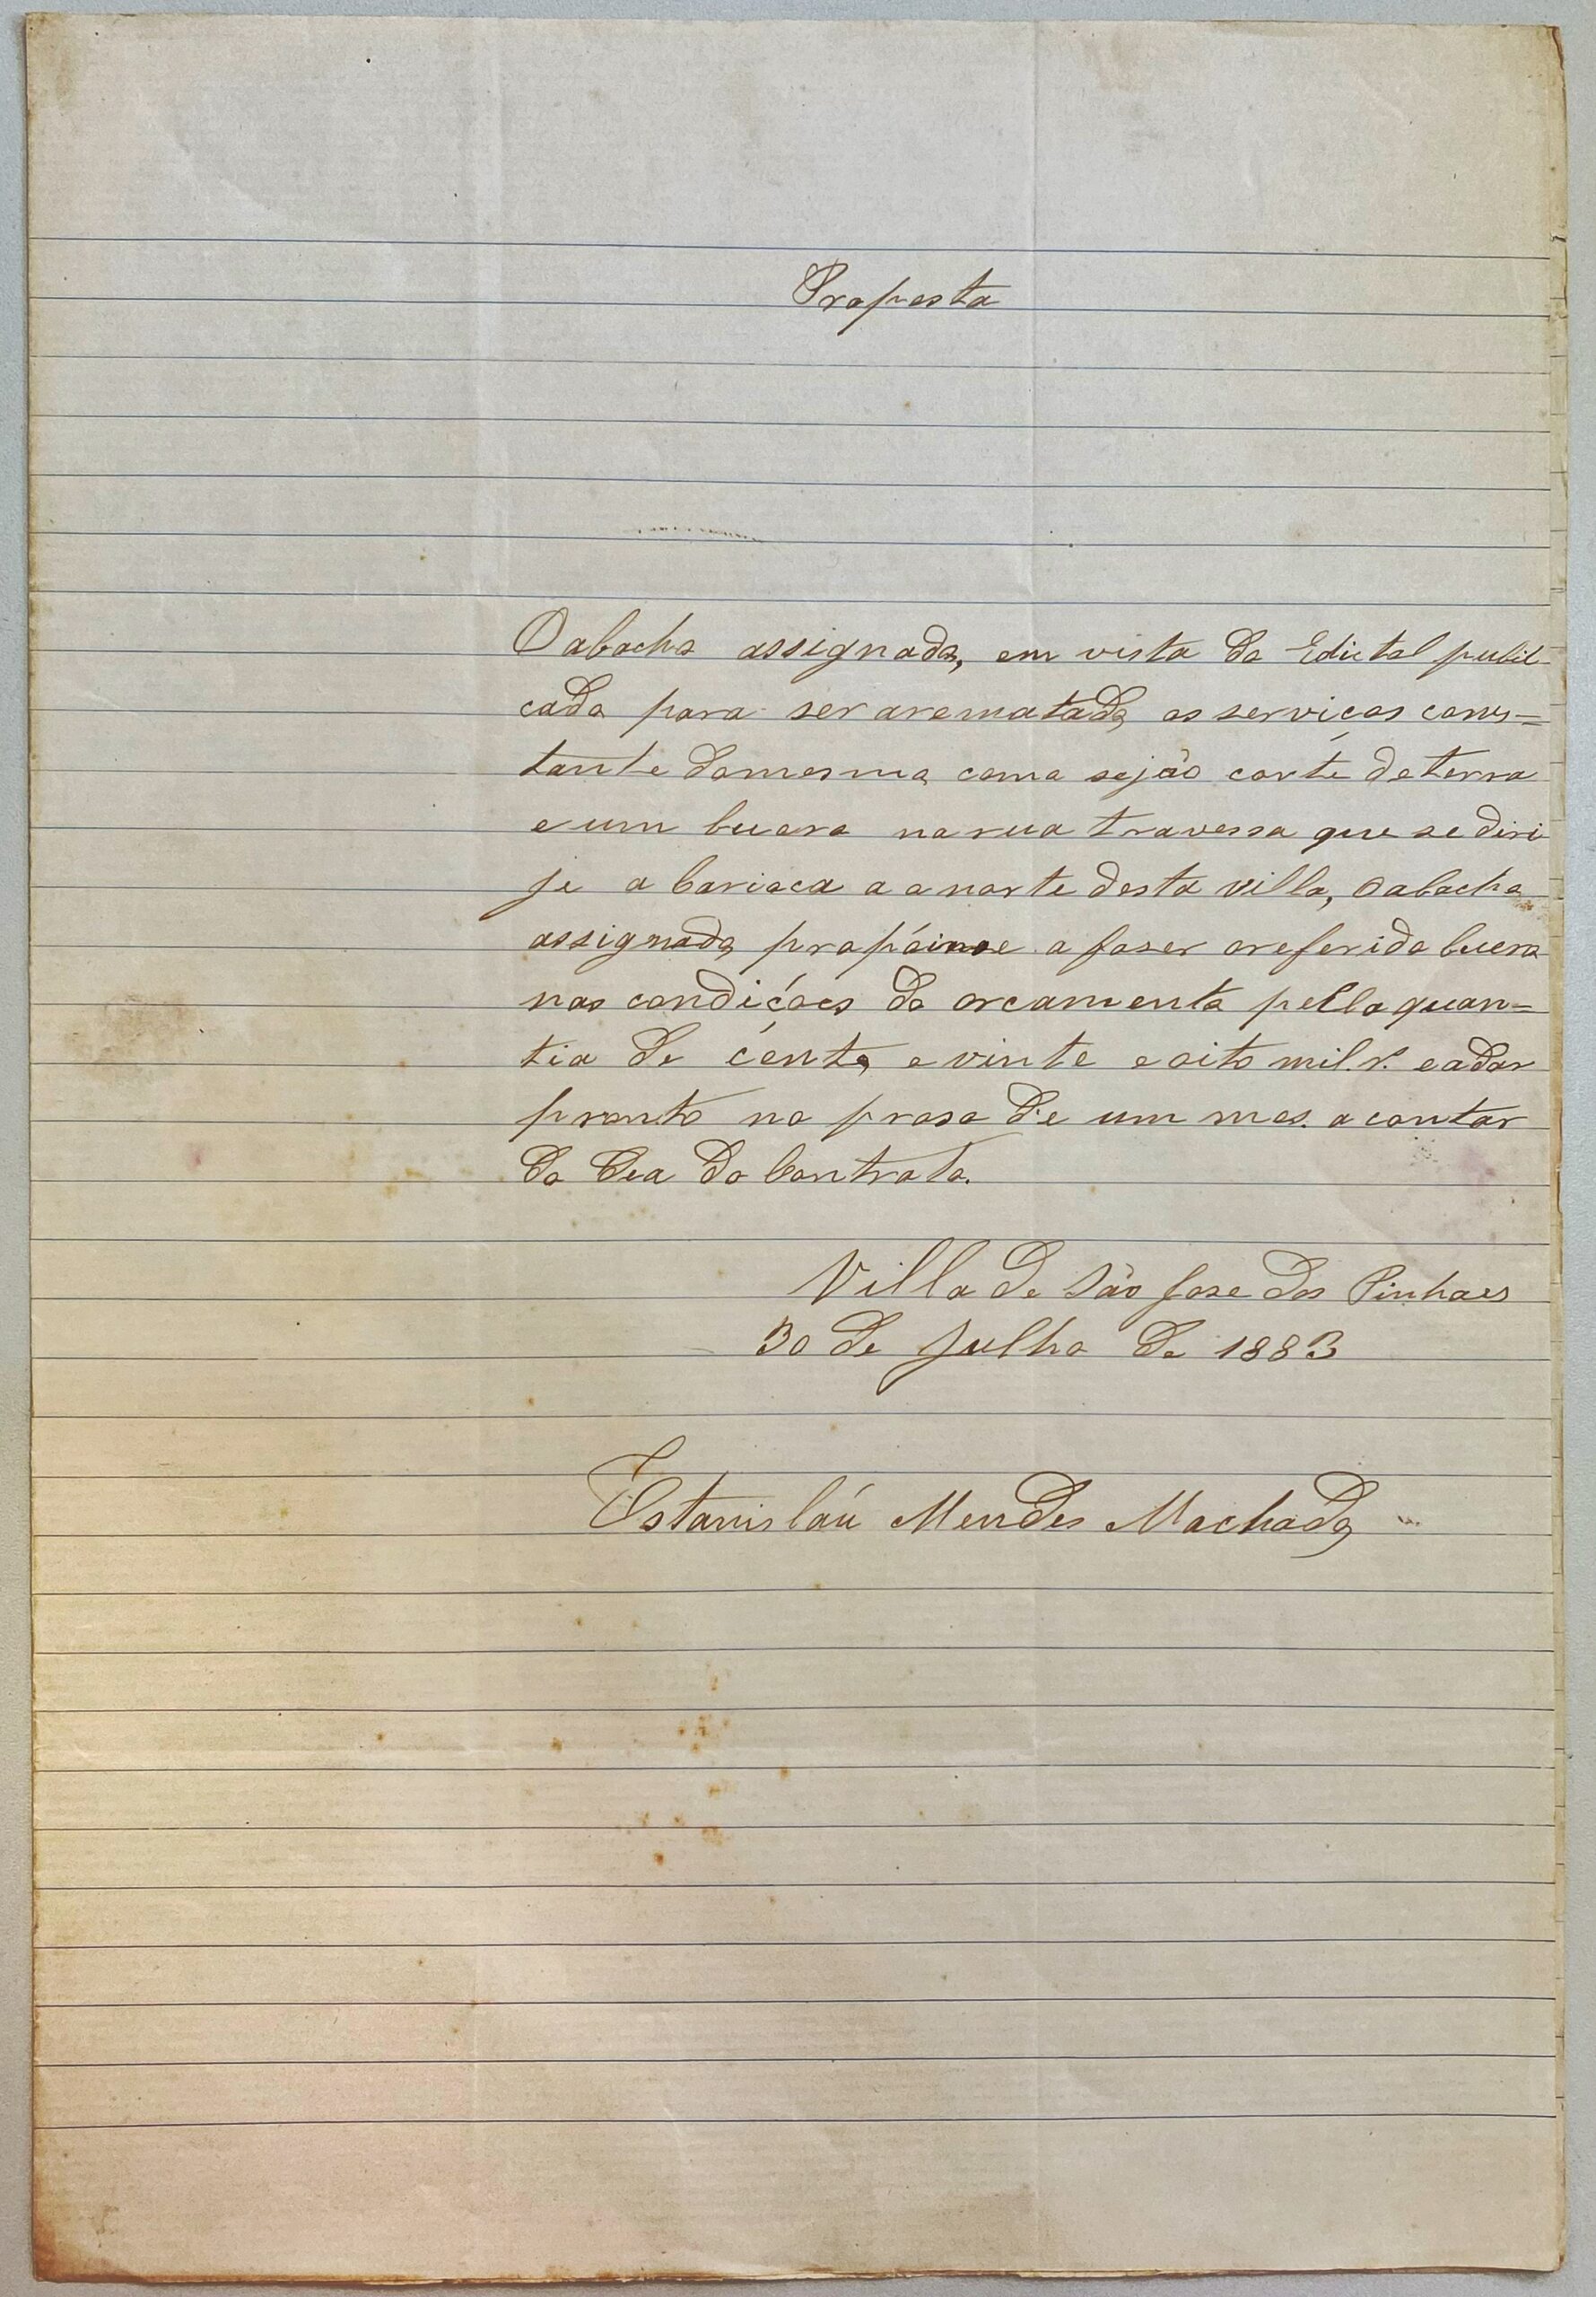 Proposta
O abacho assignado, em vista do Edictal publi-
cado para ser arematado os serviços cons=
tante do mesmo como sejão corte de terra
e um buero na rua travessa que se diri
je a Carioca a o norte desta villa, O abacho
assignado propóinse a faser o referido buero
nas condições do orcamento pello quan=
tia de cento e vinte e oito mil. r. e a dar
pronto no praso de um mes. a contar
do dia do Contrato.
Villa de São Jose dos Pinhaes
30 de Julho de 1883
Estanisláu Mendes Machado